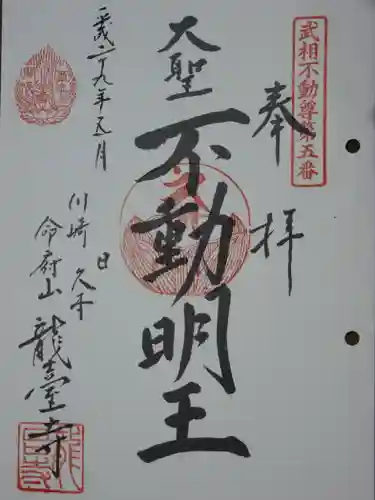 武相不動尊第五番
奉拝
大聖
不動明王
平成二十九年五月
日
川崎 久末
命府山
龍臺寺